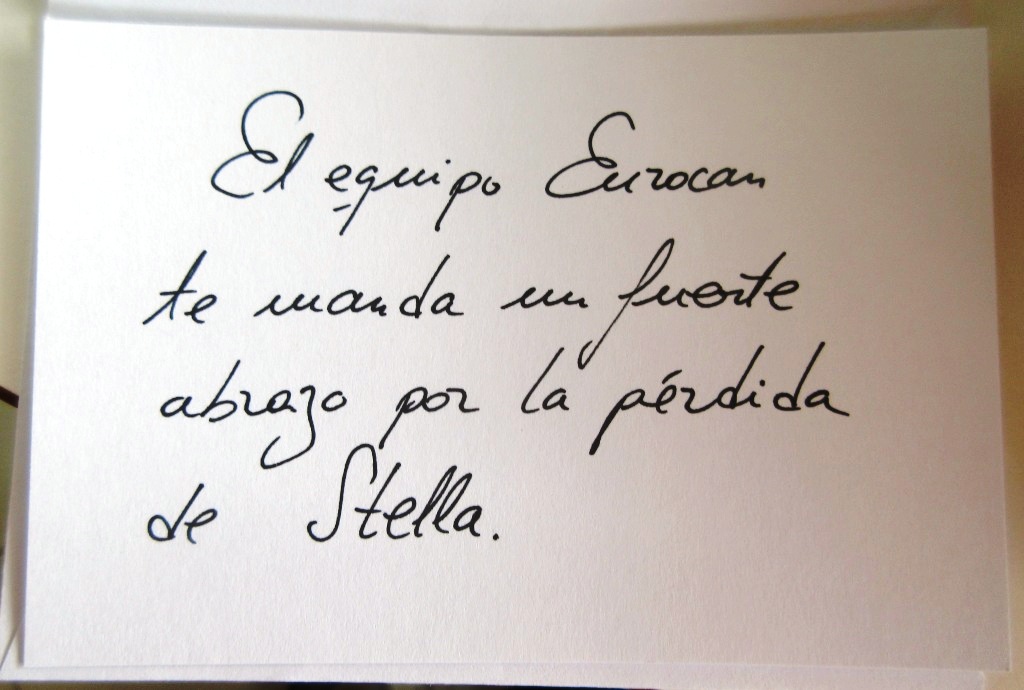 El equipo Eurocan
te manda un fuerte
abrazo por la pérdida
de Stella.